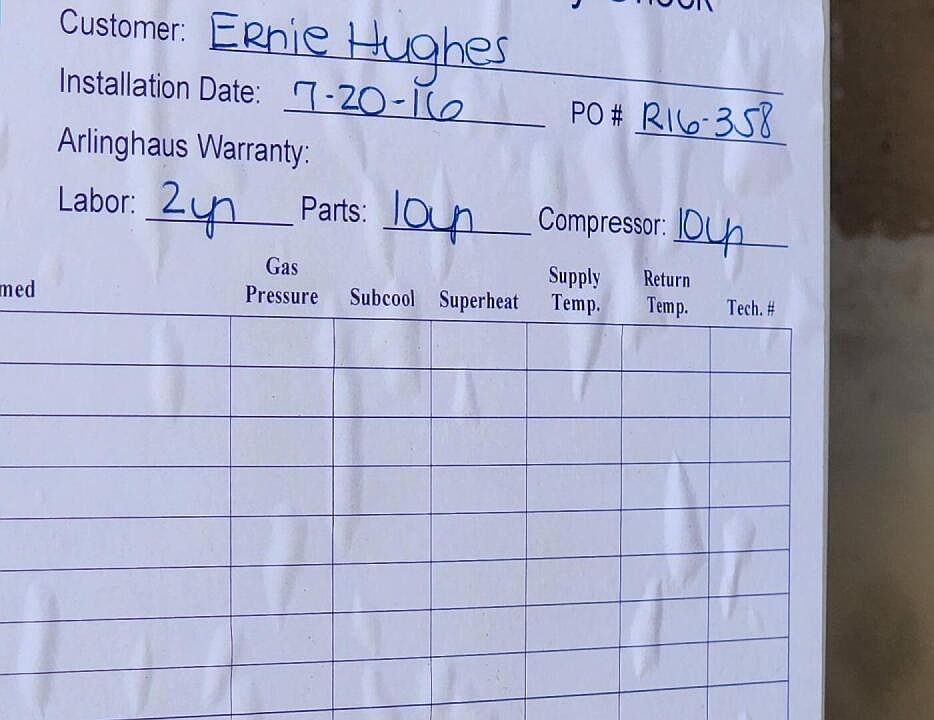 Customer: Ernie Hughes
Installation Date: 7-20-16 PO # R16-358
Arlinghaus Warranty:
Labor: 2yr Parts: 10yr Compressor: 10yr
Gas Pressure Subcool Superheat Supply Temp. Return Temp. Tech. #